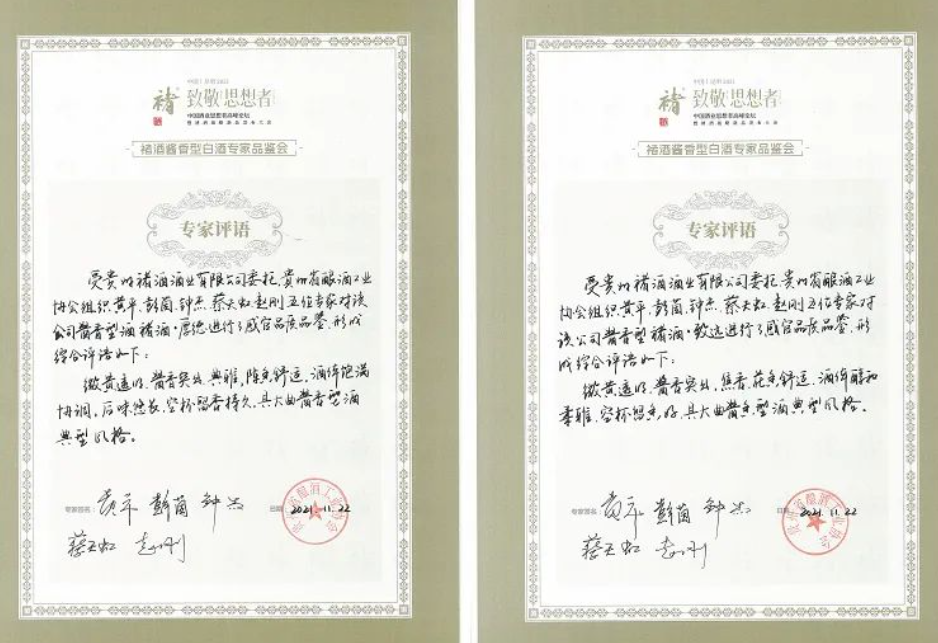 褚
致敬思想者
中国酒业思想者高峰论坛
褚酒酱香型白酒专家品鉴会
专家评语
受贵州褚酒酒业有限公司委托,贵州省酿酒工业
协会组织黄平、彭茵、钟杰、蔡天虹、赵刚五位专家对该
公司酱香型酒褚酒·厚德进行了感官品质品鉴,形成
综合评语如下:
微黄透明,酱香突出、典雅,陈香舒适,酒体饱满
协调,后味悠长,空杯留香持久,具大曲酱香型酒
典型风格。
专家签名:黄平 彭茵 钟杰
日期 2021.11.22
蔡天虹 赵刚
贵州省酿酒工业协会
褚
致敬思想者
中国酒业思想者高峰论坛
褚酒酱香型白酒专家品鉴会
专家评语
受贵州褚酒酒业有限公司委托,贵州省酿酒工
业协会组织黄平、彭茵、钟杰、蔡天虹、赵刚五位专家对
该公司酱香型褚酒·致远进行了感官品质品鉴,形
成综合评语如下:
微黄透明,酱香突出,焦香、花香舒适,酒体醇和
柔雅,空杯留香好,具大曲酱香型酒典型风格。
专家签名:黄平 彭茵 钟杰
日期 2021.11.22
蔡天虹 赵刚
贵州省酿酒工业协会